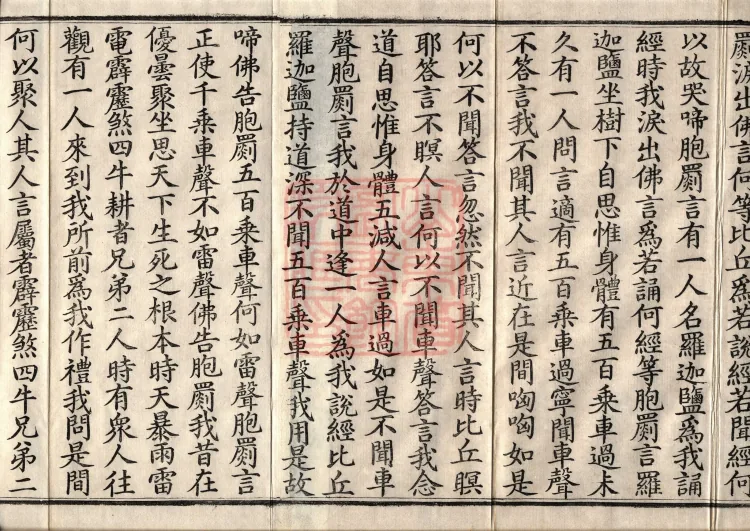 罽淚出佛言何等比丘爲若說經若聞經何
以故哭啼胞罽言有一人名羅迦鹽爲我誦
經時我淚出佛言爲若誦何經等胞罽言羅
迦鹽坐樹下自思惟身體有五百乘車過未
久有一人問言適有五百乘車過寧聞車聲
不答言我不聞其人言近在是間㗅㗅如是
何以不聞答言忽然不聞其人言時比丘瞑
耶答言不瞑人言何以不聞車聲答言我念
道自思惟身體五減人言車過如是不聞車
聲胞罽言我於道中逢一人爲我說經比丘
羅迦鹽持道深不聞五百乘車聲我用是故
啼佛告胞罽五百乘車聲何如雷聲胞罽言
正使千乘車聲不如雷聲佛告胞罽我昔在
優曇聚坐思天下生死之根本時天暴雨雷
電霹靂煞四牛耕者兄弟二人時有衆人往
觀有一人來到我所前爲我作禮我問是間
何以聚人其人言屬者霹靂煞四牛兄弟二